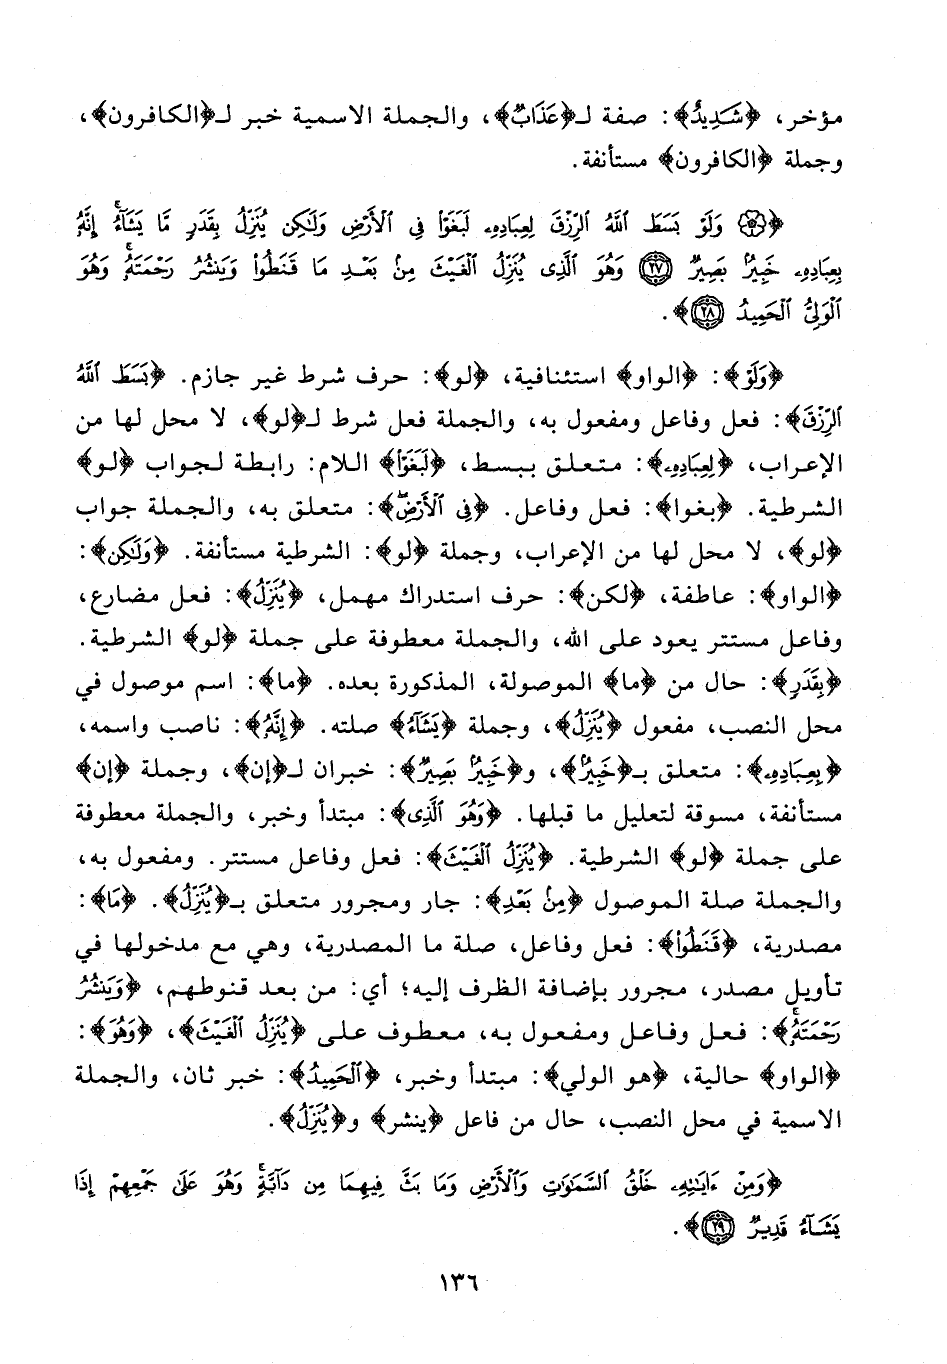 مؤخر، ﴿شَدِيدٌ﴾: صفة لـ﴿عَذَابٌ﴾، والجملة الاسمية خبر لـ﴿الكافرون﴾،
وجملة ﴿الكافرون﴾ مستأنفة.
﴿۞ وَلَوْ بَسَطَ ٱللَّهُ ٱلرِّزْقَ لِعِبَادِهِۦ لَبَغَوْا۟ فِى ٱلْأَرْضِ وَلَـٰكِن يُنَزِّلُ بِقَدَرٍ مَّا يَشَآءُ ۚ إِنَّهُۥ
بِعِبَادِهِۦ خَبِيرٌۢ بَصِيرٌ ﴿٢٧﴾ وَهُوَ ٱلَّذِى يُنَزِّلُ ٱلْغَيْثَ مِنۢ بَعْدِ مَا قَنَطُوا۟ وَيَنشُرُ رَحْمَتَهُۥ ۚ وَهُوَ
ٱلْوَلِىُّ ٱلْحَمِيدُ ﴿٢٨﴾﴾.
﴿وَلَوْ﴾: ﴿الواو﴾ استئنافية، ﴿لو﴾: حرف شرط غير جازم. ﴿بَسَطَ ٱللَّهُ
ٱلرِّزْقَ﴾: فعل وفاعل ومفعول به، والجملة فعل شرط لـ﴿لو﴾، لا محل لها من
الإعراب، ﴿لِعِبَادِهِۦ﴾: متعلق ببسط، ﴿لَبَغَوْا۟﴾ اللام: رابطة لجواب ﴿لو﴾
الشرطية. ﴿بغوا﴾: فعل وفاعل. ﴿فِى ٱلْأَرْضِ ۖ﴾: متعلق به، والجملة جواب
﴿لو﴾، لا محل لها من الإعراب، وجملة ﴿لو﴾: الشرطية مستأنفة. ﴿وَلَـٰكِن﴾:
﴿الواو﴾: عاطفة، ﴿لكن﴾: حرف استدراك مهمل، ﴿يُنَزِّلُ﴾: فعل مضارع،
وفاعل مستتر يعود على الله، والجملة معطوفة على جملة ﴿لو﴾ الشرطية.
﴿بِقَدَرٍ﴾: حال من ﴿ما﴾ الموصولة، المذكورة بعده. ﴿ما﴾: اسم موصول في
محل النصب، مفعول ﴿يُنَزِّلُ﴾، وجملة ﴿يَشَآءُ﴾ صلته. ﴿إِنَّهُۥ﴾: ناصب واسمه،
﴿بِعِبَادِهِۦ﴾: متعلق بـ﴿خَبِيرٌۢ﴾، و﴿خَبِيرٌۢ بَصِيرٌ﴾: خبران لـ﴿إن﴾، وجملة ﴿إن﴾
مستأنفة، مسوقة لتعليل ما قبلها. ﴿وَهُوَ ٱلَّذِى﴾: مبتدأ وخبر، والجملة معطوفة
على جملة ﴿لو﴾ الشرطية. ﴿يُنَزِّلُ ٱلْغَيْثَ﴾: فعل وفاعل مستتر. ومفعول به،
والجملة صلة الموصول ﴿مِنۢ بَعْدِ﴾: جار ومجرور متعلق بـ﴿يُنَزِّلُ﴾. ﴿مَا﴾:
مصدرية، ﴿قَنَطُوا۟﴾: فعل وفاعل، صلة ما المصدرية، وهي مع مدخولها في
تأويل مصدر، مجرور بإضافة الظرف إليه؛ أي: من بعد قنوطهم، ﴿وَيَنشُرُ
رَحْمَتَهُۥ ۚ﴾: فعل وفاعل ومفعول به، معطوف على ﴿يُنَزِّلُ ٱلْغَيْثَ﴾، ﴿وَهُوَ﴾:
﴿الواو﴾ حالية، ﴿هو الولي﴾: مبتدأ وخبر، ﴿ٱلْحَمِيدُ﴾: خبر ثان، والجملة
الاسمية في محل النصب، حال من فاعل ﴿ينشر﴾ و﴿يُنَزِّلُ﴾.
﴿وَمِنْ ءَايَـٰتِهِۦ خَلْقُ ٱلسَّمَـٰوَٰتِ وَٱلْأَرْضِ وَمَا بَثَّ فِيهِمَا مِن دَآبَّةٍ ۚ وَهُوَ عَلَىٰ جَمْعِهِمْ إِذَا
يَشَآءُ قَدِيرٌ ﴿٢٩﴾﴾.
١٣٦